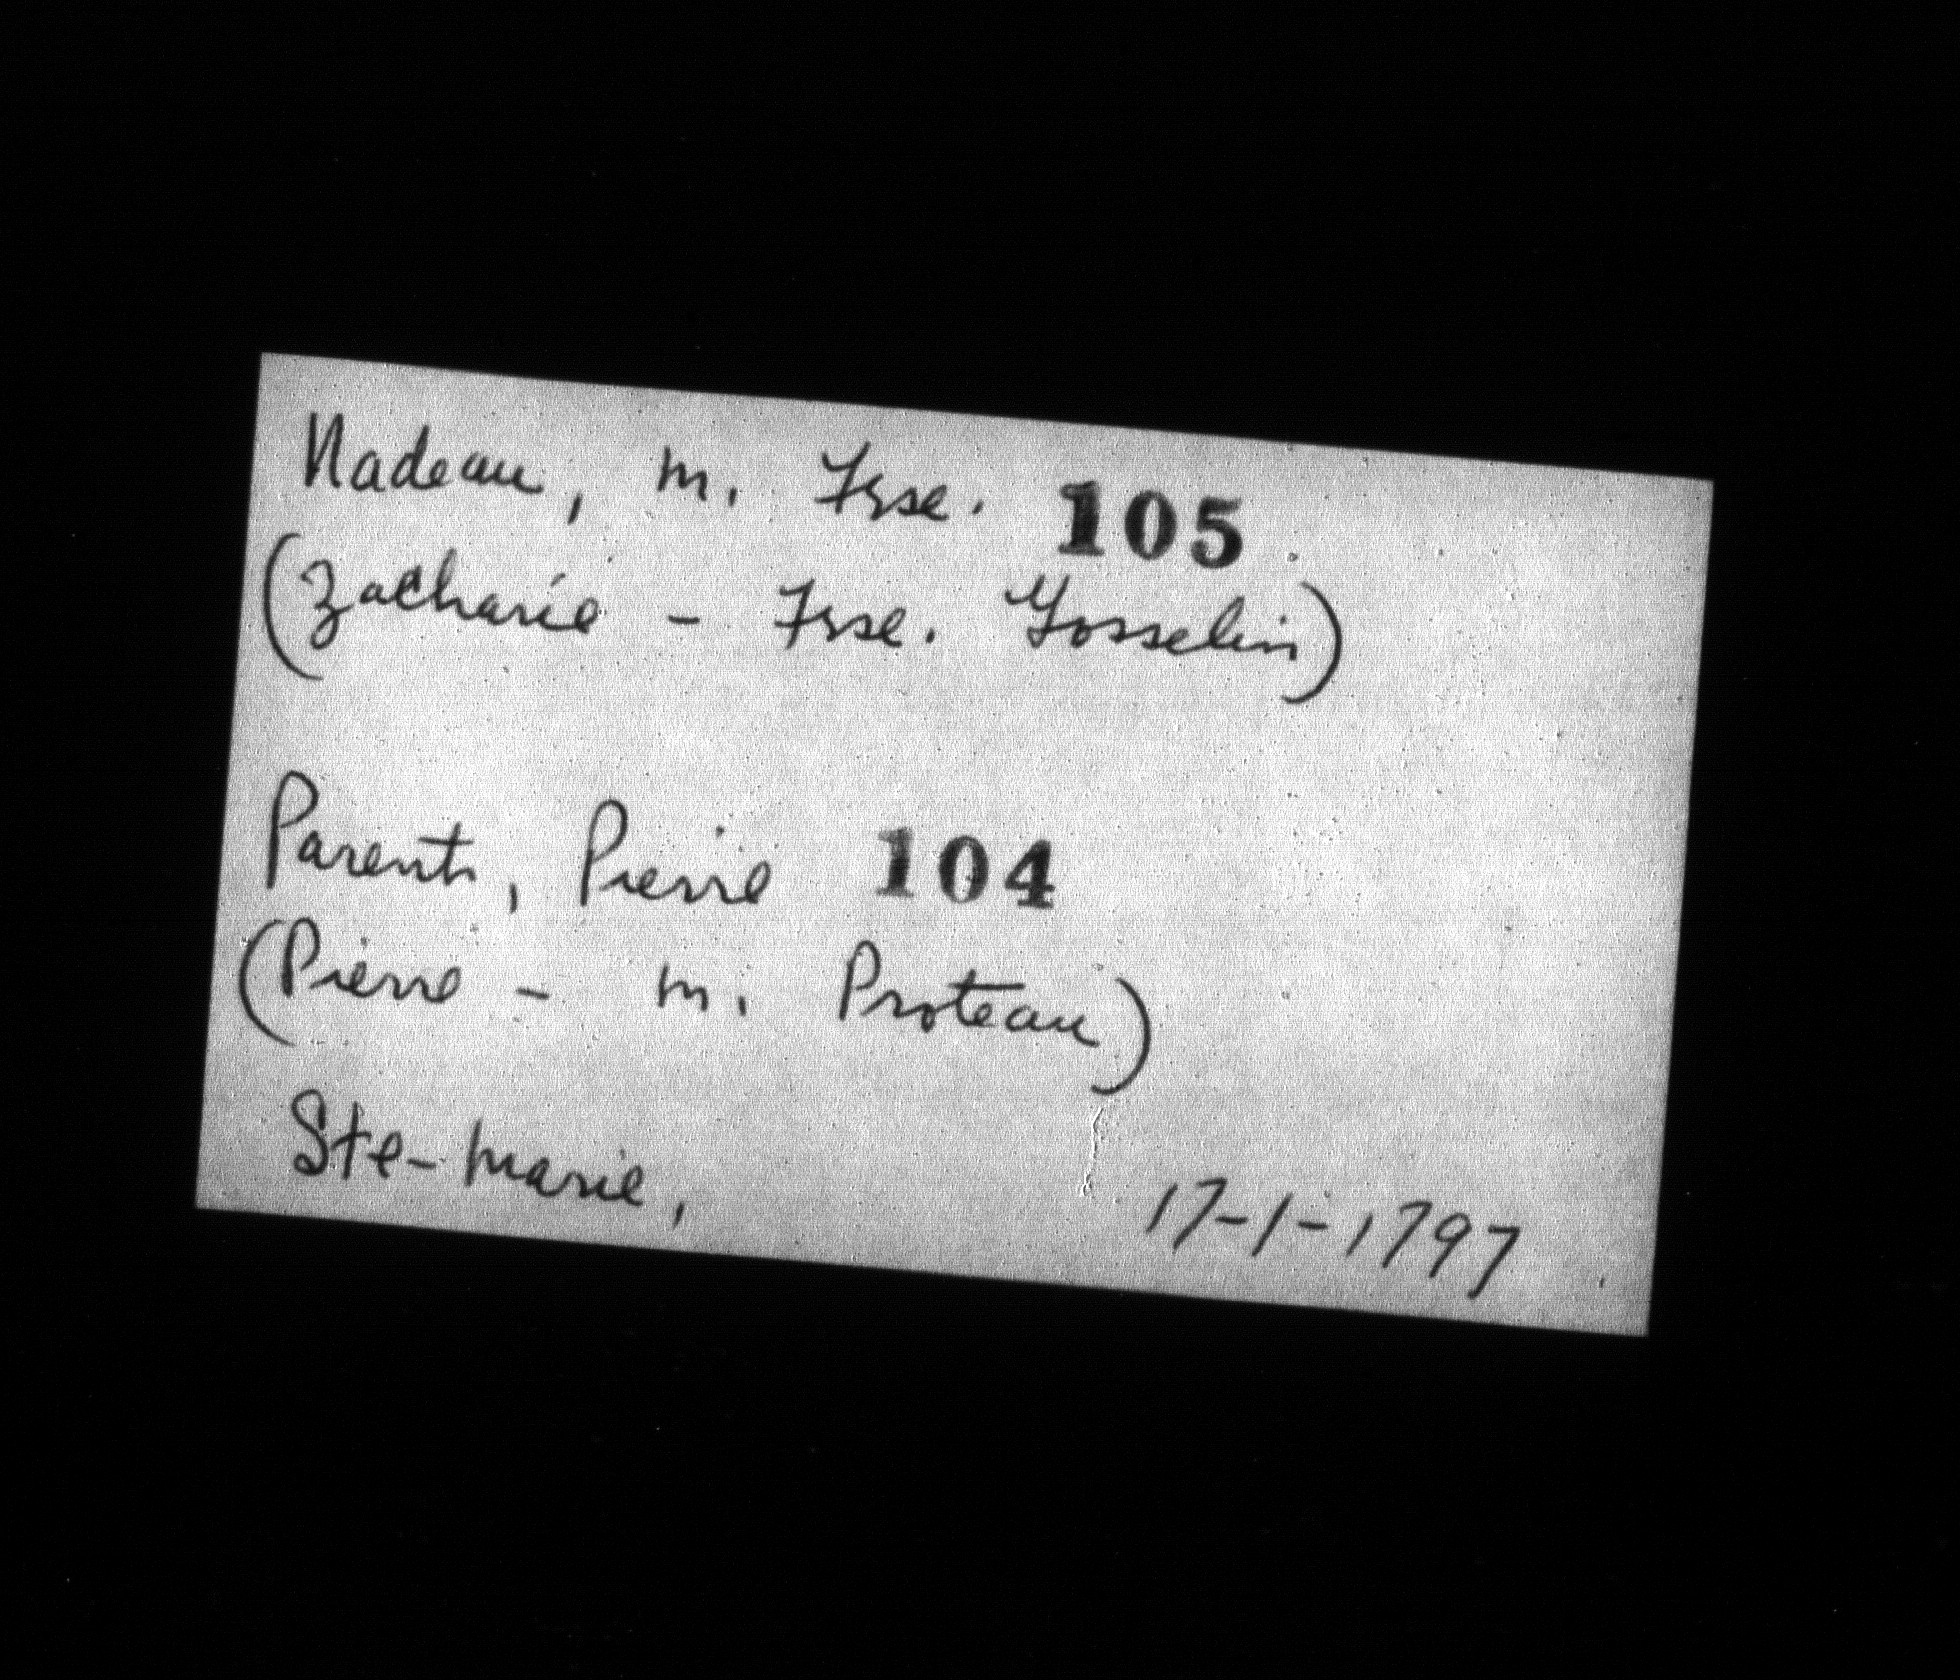 Nadeau, m. Frse. 105
(Zacharie - Frse. Gosselin)
Parent, Pierre 104
(Pierre - m. Proteau)
Ste-Marie, 17-1-1797